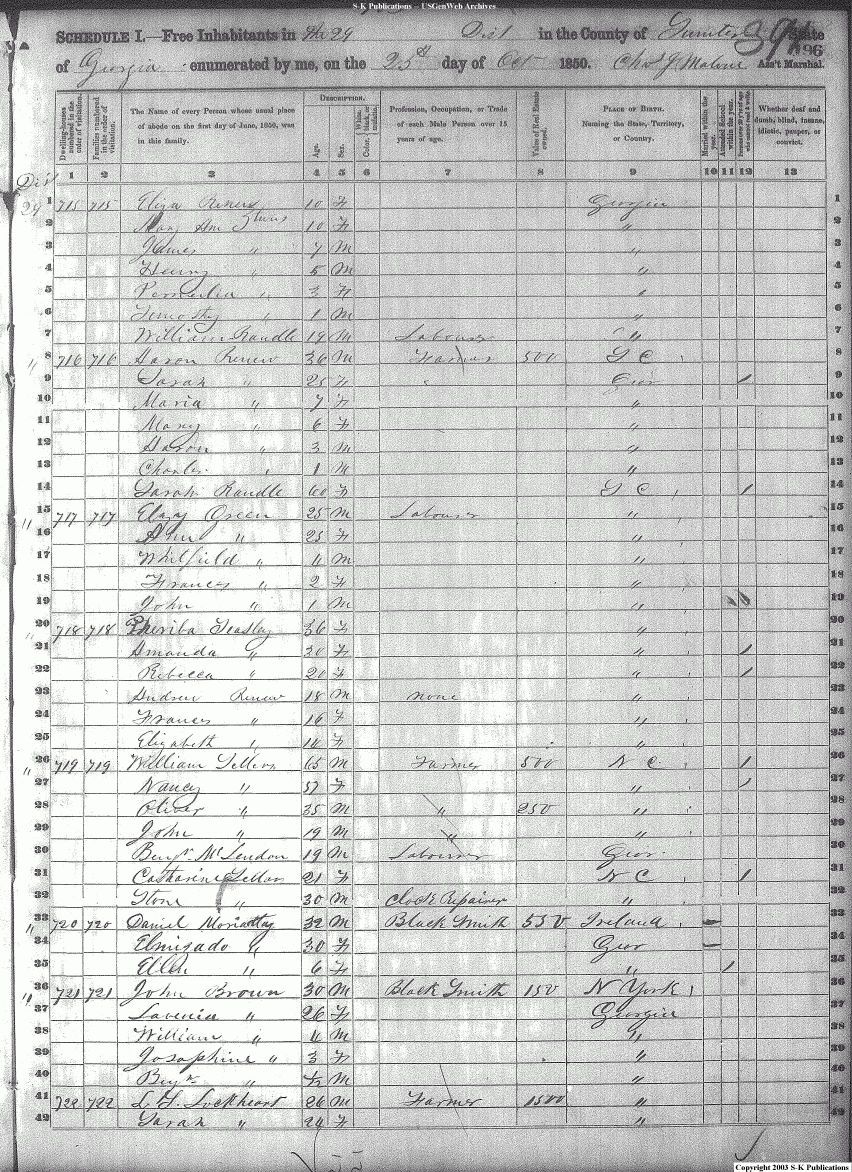 S-K Publications -- USGenWeb Archives
SCHEDULE I.—Free Inhabitants in the 29 Dist in the County of Sumter State
of Georgia enumerated by me, on the 25th day of Oct 1850. Chas J Malone Ass't Marshal.
396
Dwelling-houses numbered in the order of visitation.
Families numbered in the order of visitation.
The Name of every Person whose usual place of abode on the first day of June, 1850, was in this family.
DESCRIPTION.
Age.
Sex.
Color, White, black, or mulatto.
Profession, Occupation, or Trade of each Male Person over 15 years of age.
Value of Real Estate owned.
PLACE OF BIRTH. Naming the State, Territory, or Country.
Married within the year.
Attended School within the year.
Persons over 20 y'rs of age who cannot read & write.
Whether deaf and dumb, blind, insane, idiotic, pauper, or convict.
1 2 3 4 5 6 7 8 9 10 11 12 13
Dis
29 1 715 715 Eliza Renew 10 F Georgia 1
2 Mary Ann 10 F " 2
3 James " 7 M " 3
4 Henry " 5 M " 4
5 Permelia " 3 F " 5
6 Timothy " 1 M " 6
7 William Randle 19 M Labourer " 7
" 8 716 716 Aaron Renew 36 M Farmer 500 S C 8
9 Sarah " 25 F Geor / 9
10 Maria " 7 F " 10
11 Mary " 6 F " 11
12 Aaron " 3 M " 12
13 Charles " 1 M " 13
14 Sarah Randle 60 F S C / 14
" 15 717 717 Green 25 M Labourer " 15
16 Ann " 25 F " 16
17 Whitfield " 4 M " 17
18 Frances " 2 F " 18
19 John " 1 M " 19
" 20 718 718 Pheriba Teasley 36 F " 20
21 Amanda " 30 F " / 21
22 Rebecca " 20 F " / 22
23 Andrew Renew 18 M none " 23
24 Frances " 16 F " 24
25 Elizabeth " 14 F " 25
" 26 719 719 William Sellers 65 M Farmer 500 N C / 26
27 Nancy " 57 F " / 27
28 Oliver " 35 M " 250 " 28
29 John " 19 M " " 29
30 Benjn. McLendon 19 M Labourer Geor 30
31 Catharine Sellers 21 F N C / 31
32 Stone " 30 M Clock Repairer " 32
" 33 720 720 Daniel Moriartty 32 M Black Smith 550 Ireland 33
34 " 30 F Geor 34
35 Ellen " 6 F " / 35
" 36 721 721 John Brown 30 M Black Smith 150 N York 36
37 Lavenia " 26 F Georgia 37
38 William " 4 M " 38
39 Josaphine " 3 F " 39
40 Benjn. " M " 40
41 722 722 Lockheart 26 M Farmer 1500 " 41
42 Sarah " 24 F " 42
Copyright 2003 S-K Publications